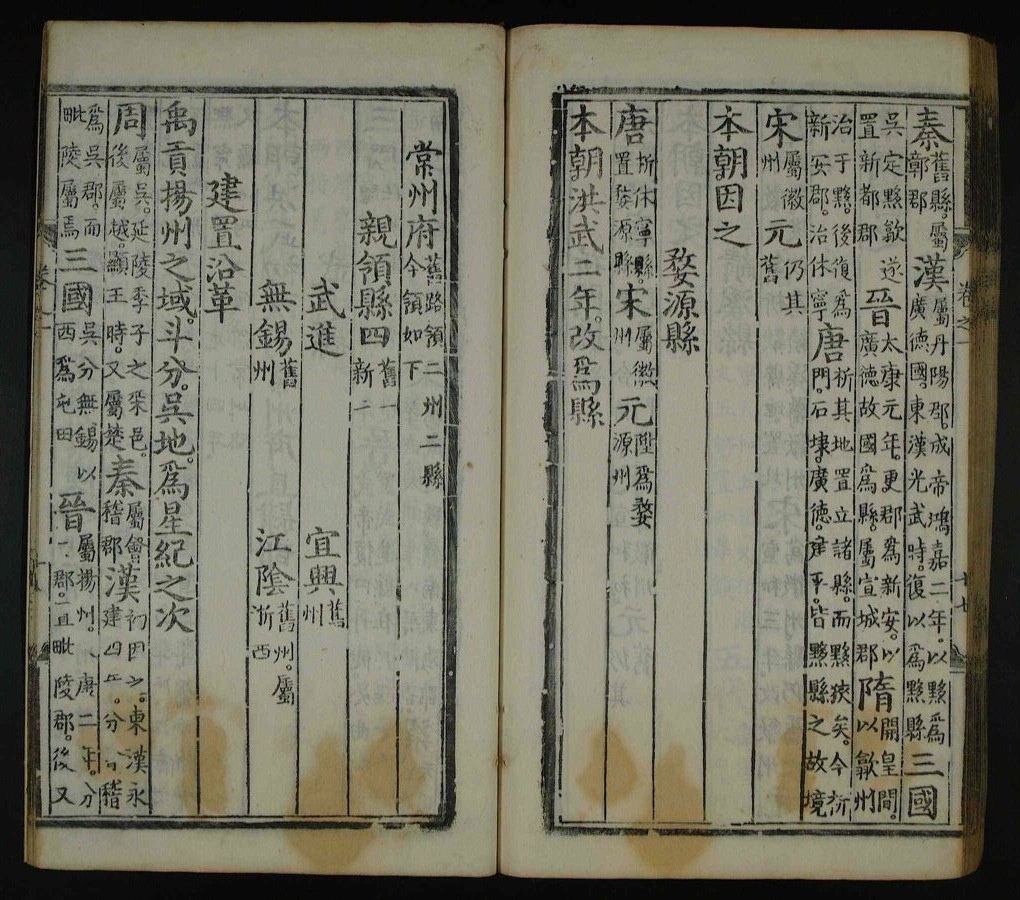 秦舊縣。屬鄣郡漢屬丹陽郡。成帝鴻嘉二年。以黟為廣德國東漢光武時。復以為黟縣三國
吳定黟歙。遂置新都郡晉太康元年。更郡為新安。以廣德故國為縣。屬宣城郡隋開皇間。以歙州
治于黟。後復為新安郡。治休寧唐析其地置立諸縣。而黟狹矣。今祈門。石埭。廣德。建平。皆黟縣之故境
宋屬徽州元仍其舊
本朝因之
婺源縣
唐析休寧縣。置婺源縣宋屬徽州元陞為婺源州
本朝洪武二年。改為縣
常州府舊路領二州二縣今領如下
親領縣四舊一新二
武進 宜興舊州
無錫舊州 江陰舊州。屬浙西
建置沿革
禹貢揚州之域。斗分。吳地。為星紀之次
周屬吳。延陵季子之采邑。後屬越。顯王時。又屬楚秦屬會稽郡漢初因之。東漢永建四年。分會稽
為吳郡。而毗陵屬焉三國吳分無錫以西為屯田晉屬揚州。康二年。分郡。毗陵郡。後又